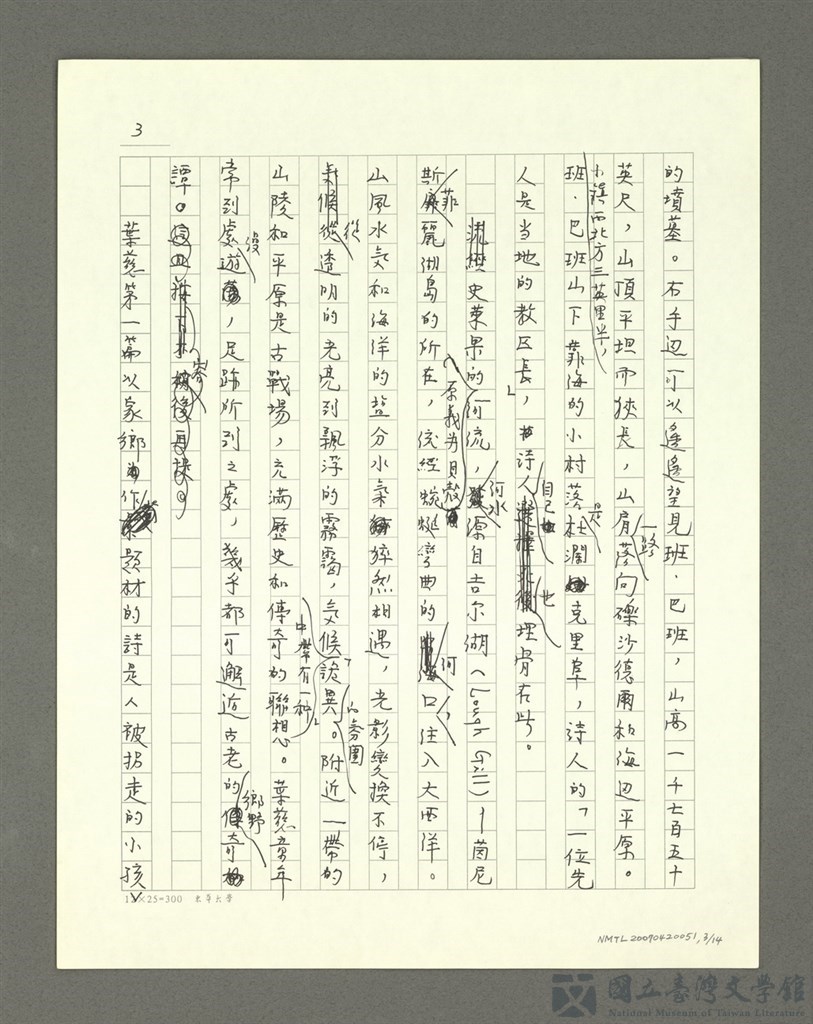 3
的墳墓。右手邊可以遙遙望見班·巴班，山高一千七百五十
英尺，山頂平坦而狹長，山肩一路落向磔沙德爾和海邊平原。
小鎮西北方三英里半，
班·巴班山下靠海的小村落是杜瀾克里阜，詩人的「一位先
人是當地的教区長」，詩人自己也埋骨在此。
流經史萊果的河流，河水源自吉尔湖（Lough Gill）－茵尼
（原義为貝殼）
斯菲麗湖島的所在，流經蜿蜒彎曲的河口，注入大西洋。
山風水氣和海洋的盐分水氣猝然相遇，光影變換不停，
從透明的光亮到飄浮的霧靄，气候詭異。附近一帶的
中帶有一種 的氛圍
山陵和平原是古戰場，充滿歷史和傳奇的聯想。葉慈童年
常到處遊蕩，足跡所到之處，幾乎都可邂逅古老的鄉野傳奇
譚。
葉慈第一篇以家鄉作題材的詩是人被拐走的小孩
12×25=300 東華大學
NMTL20090420051, 3/14
國立臺灣文學館
National Museum of Taiwan Literature